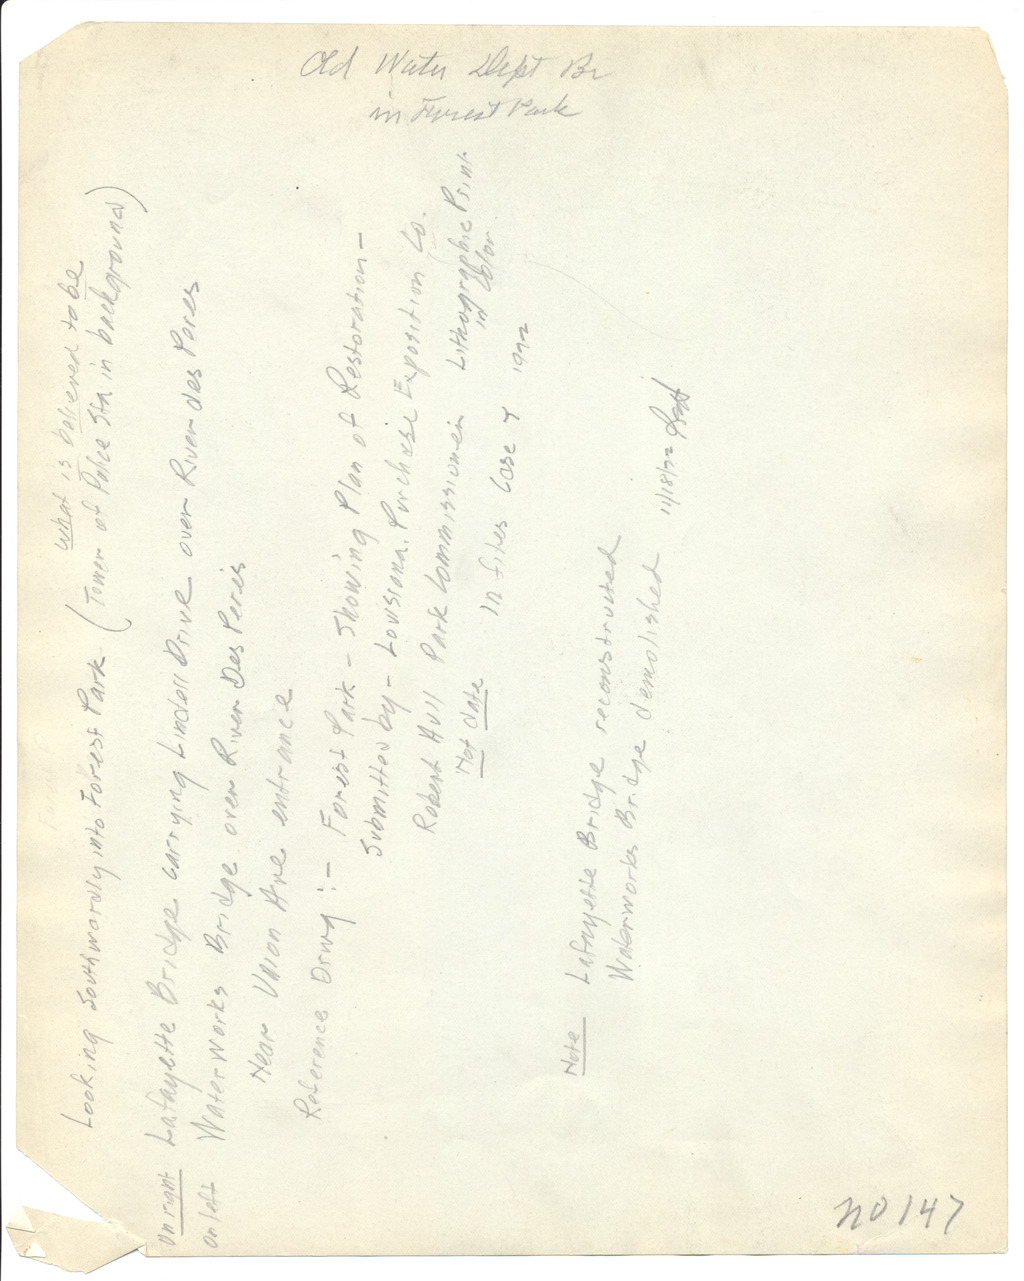 Old Water Dept Br
in Forest Park
what is believed to be
Looking Southwardly into Forest Park (Tower of Police Sta in background)
on right Lafayette Bridge carrying Lindell Drive over River des Peres
on left Waterworks Bridge over River Des Peres
Near Union Ave entrance
Reference Drwg :- Forest Park - Showing Plan of Restoration -
Submitted by - Louisiana Purchase Exposition Co.
Robert Aull Park Commissioner Lithographic Print
in Color
Not Date In files Case 7 1922
Note Lafayette Bridge reconstructed
Waterworks Bridge demolished 11/18/22
NO 147